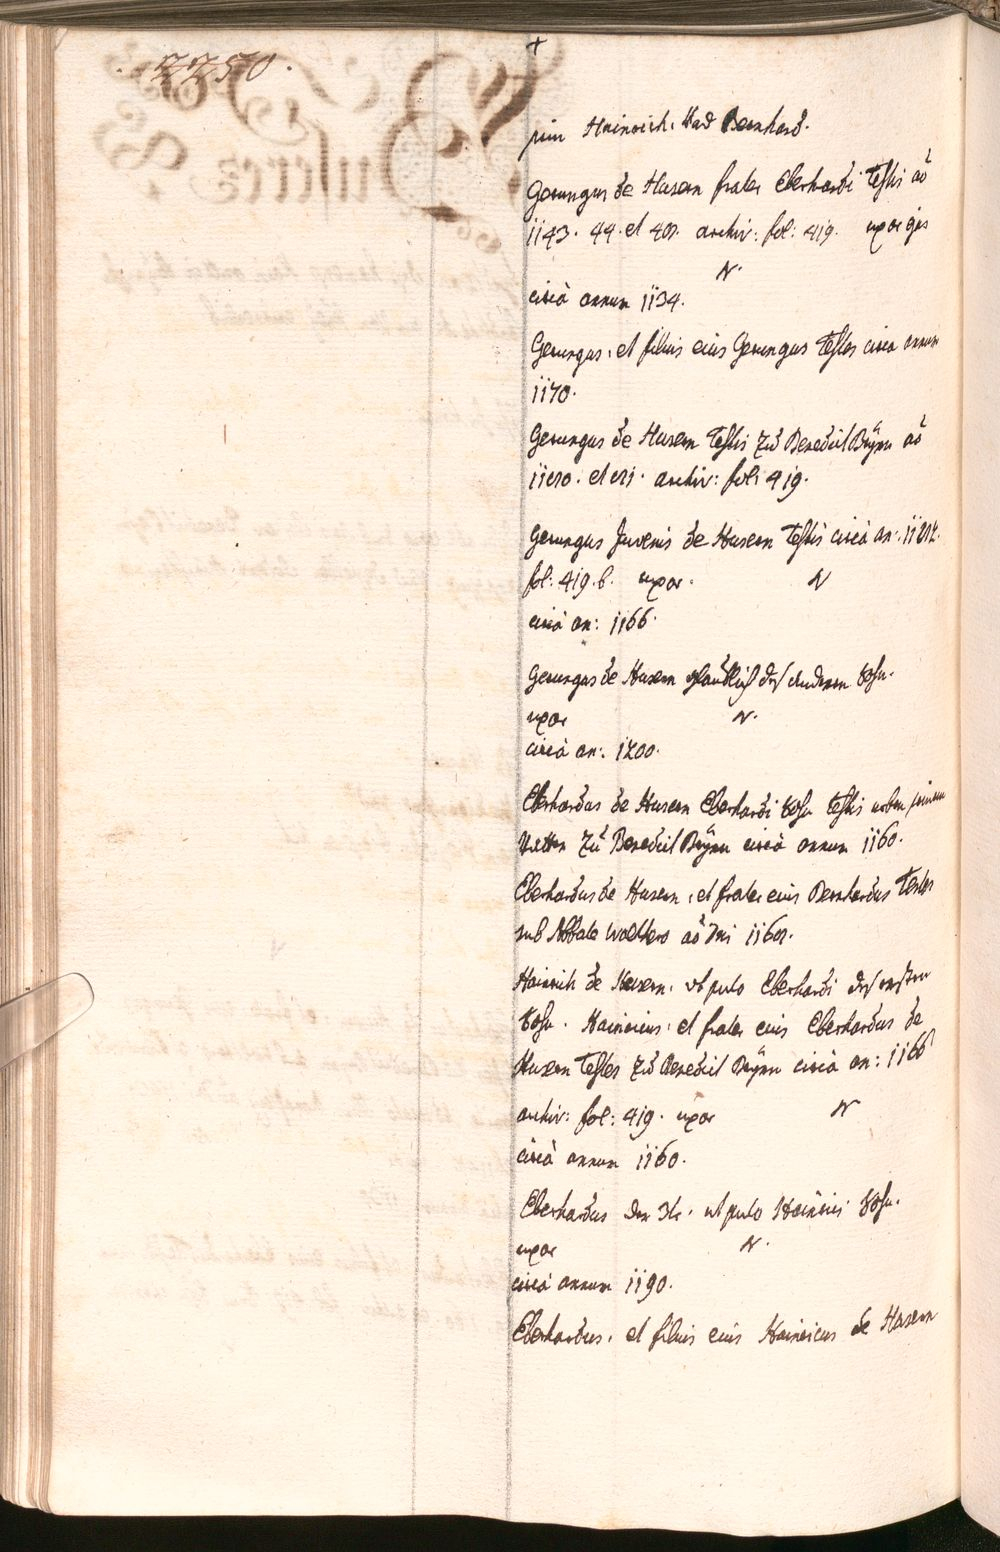 2250.
+
Heinrich, Vnd Bernhard.
Gerungus de Husern frater Eberhardi Testis aō
1143. 44. et 48. archiv: fol: 419. uxor ejus
N.
circà annum 1134.
Gerungus, et filius eius Gerungus Testes circa annum
1170.
Gerungus de Husern Testis zů BenedictBeÿrn aō
1180. et 81. archiv: fol: 419.
Gerungus Juvenis de Husern Testis circà an:
fol: 419. b. uxor. N
circà an: 1166.
Gerungus de Husern glaublich deß anderen Sohn.
uxor N.
circà an: 1200.
Eberhardus de Husern Eberhardi Sohn Testis neben seinem
Vettern Zů Benedict Beÿrn circà annum 1160.
Eberhardus de Husern, et frater eius Bernhardus Testes
sub Abbate Walthero aō Dni 1168.
Hainrich de Husern, ut puto Eberhardi deß ersten
Sohn. Hainricus, et frater eius Eberhardus de
Husern Testes Zů Benedict Beÿrn circà an: 1166
archiv: fol: 419. uxor N
circà annum 1160.
Eberhardus der 3te. ut puto Hainrici Sohn.
uxor N.
circà annum 1190.
Eberhardus, et filius eius Hainricus de Husern